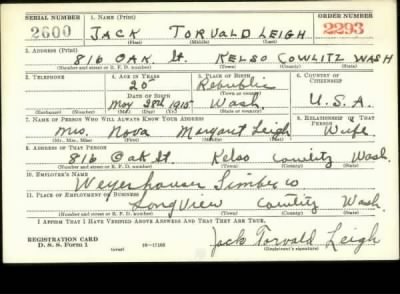 SERIAL NUMBER 1. NAME (Print) ORDER NUMBER
2600 JACK TORVALD LEIGH 2293
(First) (Middle) (Last)
2. ADDRESS (Print)
816 OAK St. KELSO COWLITZ WASH
(Number and street or R. F. D. number) (Town) (County) (State)
3. TELEPHONE 4. AGE IN YEARS 5. PLACE OF BIRTH 6. COUNTRY OF CITIZENSHIP
25 Republic
(Town or county)
DATE OF BIRTH
May 1915 Wash. U.S.A.
(Exchange) (Number) (Mo.) (Day) (Yr.) (State or country)
7. NAME OF PERSON WHO WILL ALWAYS KNOW YOUR ADDRESS 8. RELATIONSHIP OF THAT PERSON
Mrs. Nova Margaret Leigh Wife
(Mr., Mrs., Miss) (First) (Middle) (Last)
9. ADDRESS OF THAT PERSON
816 Oak St. Kelso Cowlitz Wash.
(Number and street or R. F. D. number) (Town) (County) (State)
10. EMPLOYER'S NAME
Weyerhauser Timber Co
11. PLACE OF EMPLOYMENT OR BUSINESS
Longview Cowlitz Wash.
(Number and street or R. F. D. number) (Town) (County) (State)
I AFFIRM THAT I HAVE VERIFIED ABOVE ANSWERS AND THAT THEY ARE TRUE.
REGISTRATION CARD
D. S. S. Form 1 (over) 16—17105
Jack Torvald Leigh
(Registrant's signature)